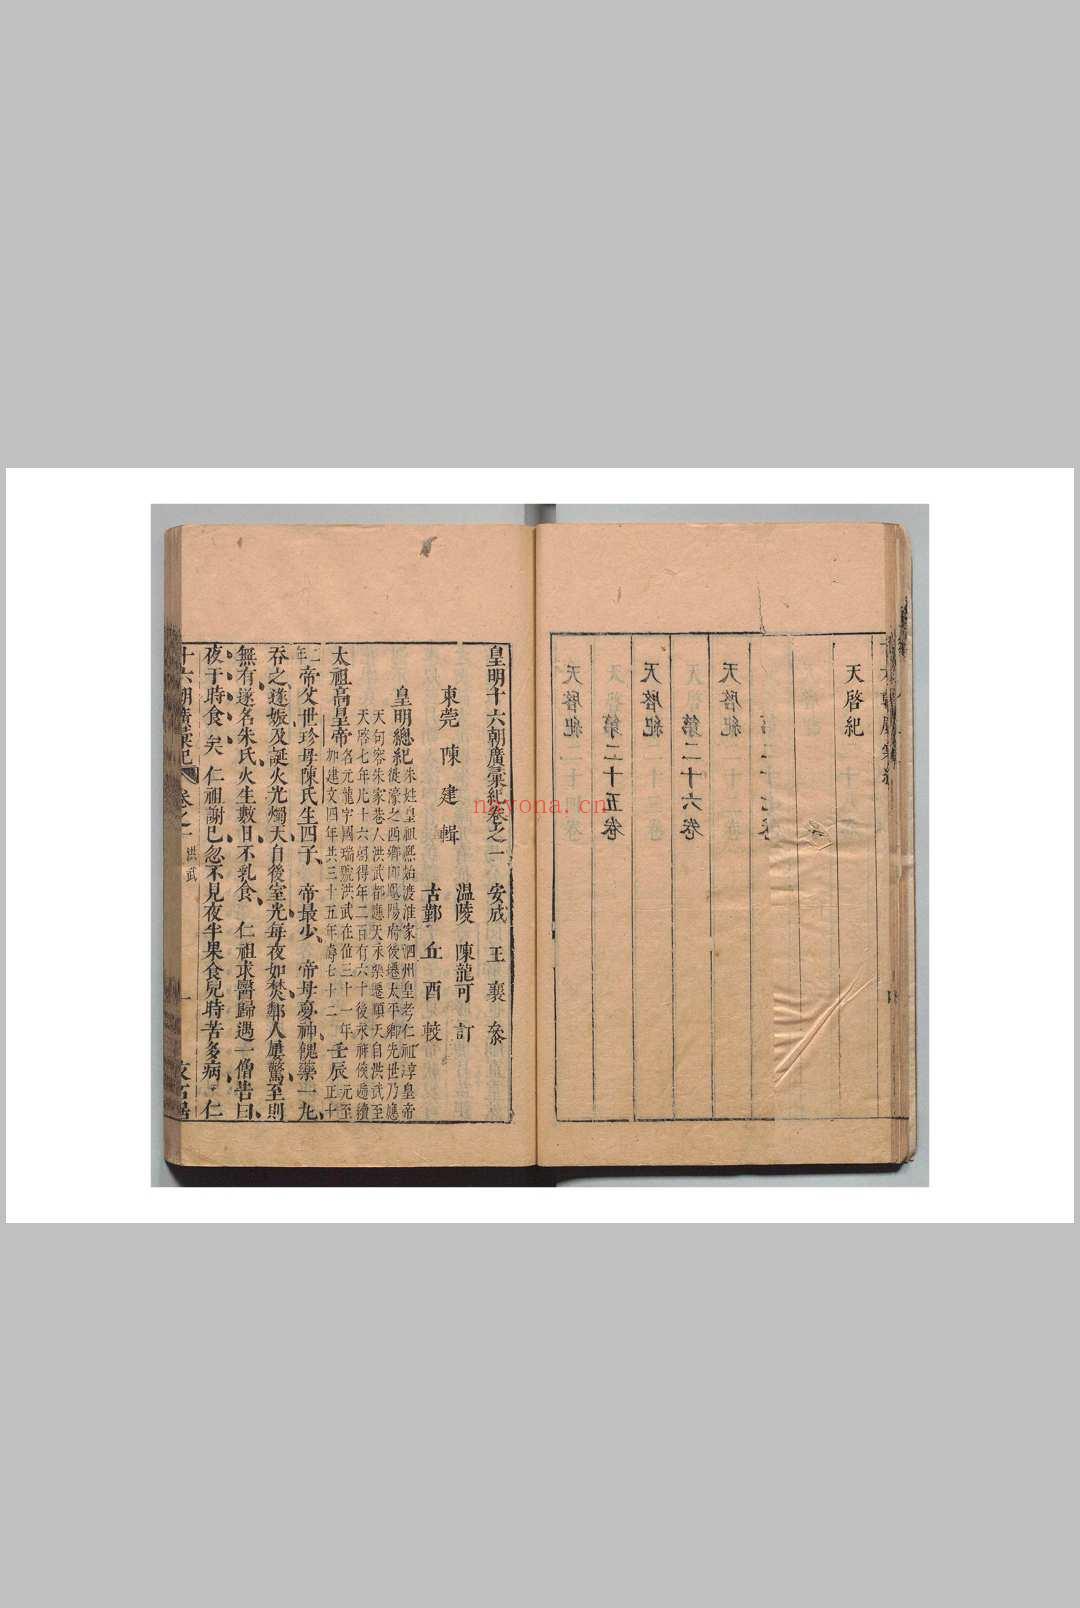 天啓紀
皇明十六朝廣彙紀卷之一
安成 王 襄 叅
東莞 陳 建 輯
温陵 陳龍可 訂
古鄞 丘 酉 較
皇明總紀
朱姓皇祖熙始渡淮家泗州皇考仁祖淳皇帝
徙濠之西鄉卽鳳陽府後遷太平鄉先世乃應
天句容朱家巷人洪武都應天永樂遷順天自洪武至
天啓七年凡十六
太祖高皇帝
名元龍字國瑞號洪武在位三十一年
加建文四年共三十五年壽七十二
壬辰
元至正十二年
帝父世珍母陳氏生四子帝最少帝母夢神餽藥一丸
吞之遂娠及誕火光燭天自後室光每夜如焚鄰人屢驚至則
無有遂名朱氏火生數日不乳食仁祖求醫歸遇一僧告曰
夜子時食矣仁祖謝已忽不見夜半果食兒時苦多病仁
十六朝廣彙紀
卷之一
洪武
一
友石居
nayona.cn